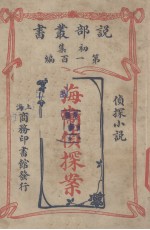 說部叢書
初集
第一百編
偵探小說
海衛偵探案
上海
商務印書館發行